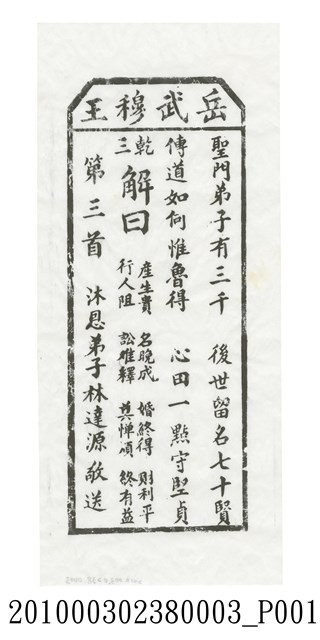 岳武穆王
聖門弟子有三千　後世留名七十賢
傳道如何惟魯得　心田一點守堅貞
乾三
解曰
產生貴　名晚成　婚終得　財利平
行人阻　訟难釋　莫惮煩　終有益
第三首　沐恩弟子林達源敬送
201000302380003_P001